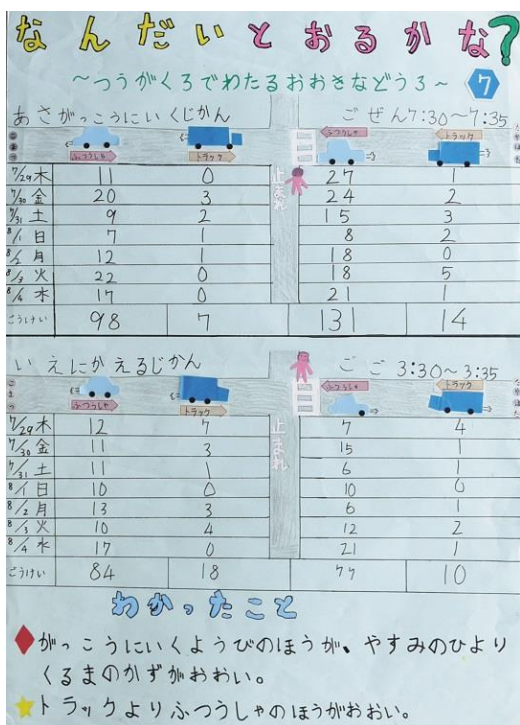 なんだいとおるかな?
～つうがくろでわたるおおきなどうろ～ 7
あさがっこうにいくじかん ごぜん7:30～7:35
ふつうしゃ トラック 止まれ ふつうしゃ トラック
7/29 木 11 0 27 1
7/30 金 20 3 24 2
7/31 土 9 2 15 3
8/1 日 7 1 8 2
月 12 1 18 0
火 22 0 18 5
17 0 21 1
ごうけい 98 7 131 14
いえにかえるじかん ごご3:30～3:35
ふつうしゃ トラック 止まれ ふつうしゃ トラック
7/29 木 12 7 7 4
7/30 金 11 3 15 1
7/31 土 11 1 6 1
8/1 日 10 0 10 0
8/2 月 13 3 6 1
8/3 火 10 4 12 2
8/4 17 0 21 1
ごうけい 84 18 77 10
わかったこと
がっこうにいくようびのほうが、やすみのひより
くるまのかずがおおい。
トラックよりふつうしゃのほうがおおい。